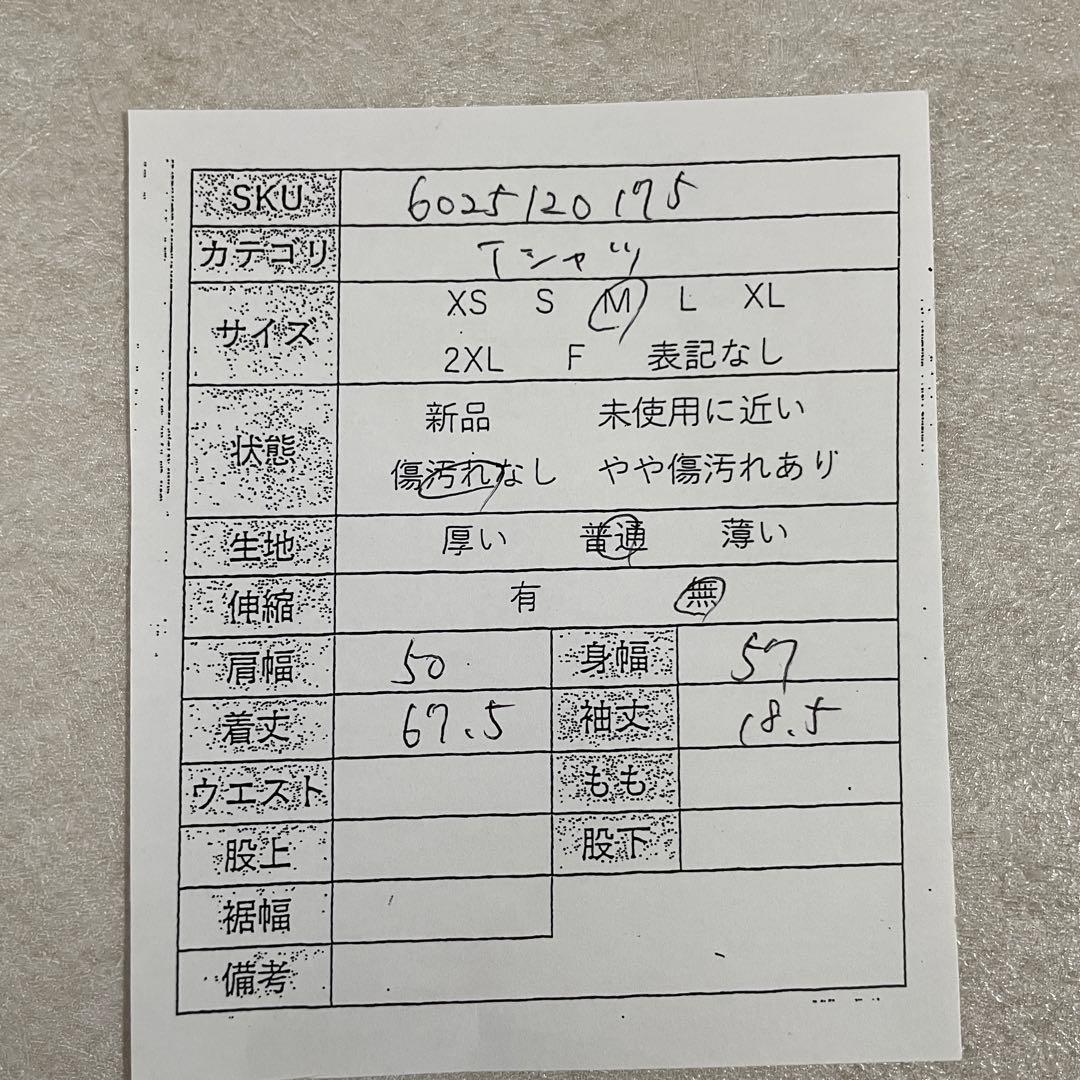 SKU 6025120175
カテゴリ Tシャツ
サイズ XS S M L XL
2XL F 表記なし
状態 新品 未使用に近い
傷汚れなし やや傷汚れあり
生地 厚い 普通 薄い
伸縮 有 無
肩幅 50 身幅 57
着丈 67.5 袖丈 18.5
ウエスト もも
股上 股下
裾幅
備考